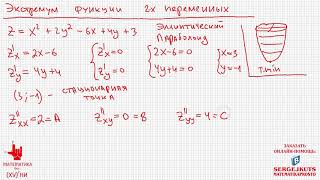 Экстремум функции 2х переменных
Z = x² + 2y² - 6x + 4y + 3
Эллиптический
Параболоид
Z'x = 2x - 6
Z'y = 4y + 4
{ Z'x = 0
Z'y = 0
{ 2x - 6 = 0
4y + 4 = 0
{ x = 3
y = -1
T.min
(3; -1) - стационарная
точка
Z''xx = 2 = A
Z''xy = 0 = B
Z''yy = 4 = C
МАТЕМАТИКА
(XV)'НИ
ЗАКАЗАТЬ
ОНЛАЙН-ПОМОЩЬ:
SERGEJKUTS
МАТЕМАТИКАПРОСТО